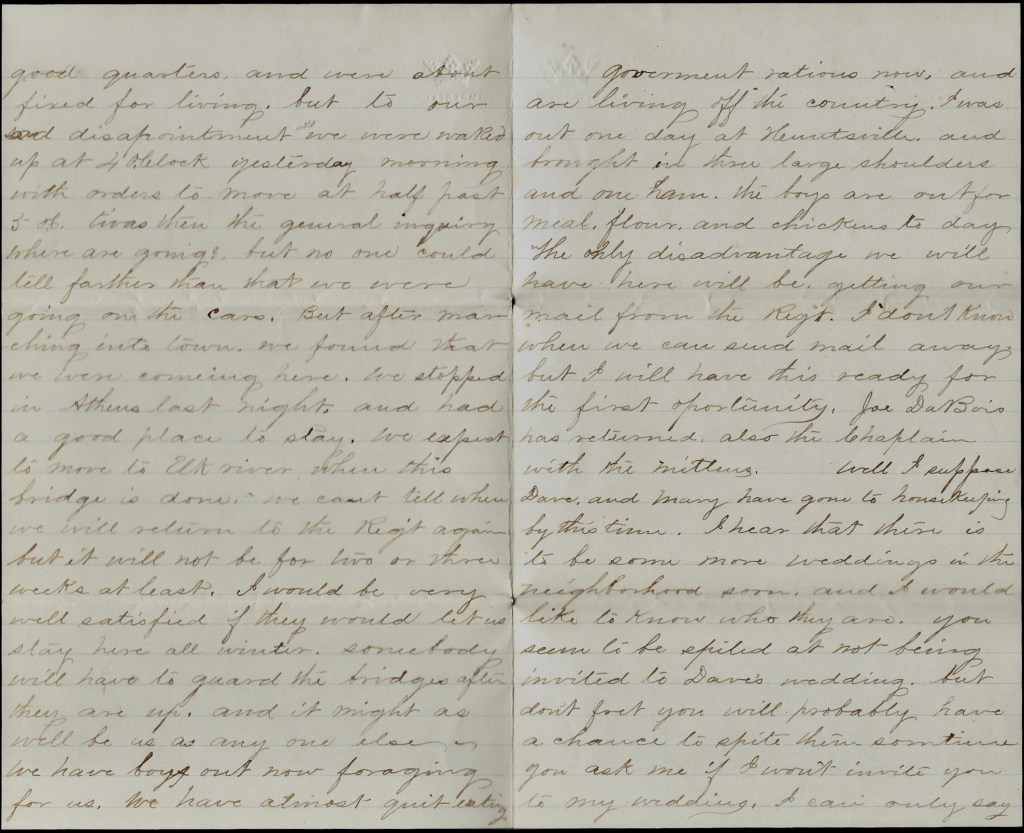 good quarters. and were about
fixed for living. but to our
sad disapointment we were waked
up at 4 Oclock yesterday morning
with orders to move at half past
5 oc. twas then the general inquiry
where are going?. but no one could
tell farther than that we were
going on the cars. But after mar-
ching into town. we found that
we were comeing here. We stopped
in Athens last night. and had
a good place to stay. We expect
to move to Elk river when this
bridge is done. - we cant tell when
we will return to the Reg't again
but it will not be for two or three
weeks at least. I would be very
well satisfied if they would let us
stay here all winter. somebody
will have to guard the bridges after
they are up. and it might as
well be us as any one else
We have boys out now foraging
for us. We have almost quit eating
Goverment rations now. and
are living off the country. I was
out one day at Huntsville. and
brought in three large shoulders
and one ham. the boys are out for
meal. flour. and chickens to day
The only disadvantage we will
have here will be getting our
mail from the Reg't. I dont know
when we can send mail away
but I will have this ready for
the first oportunity. Joe DuBois
has returned. also the Chaplain
with the mittens. Well I suppose
Dave. and Mary have gone to housekeeping
by this time. I hear that there is
to be some more weddings in the
neighborhood soon. and I would
like to know who they are. you
seem to be spited at not being
invited to Dave's wedding. but
don't fret you will probably have
a chance to spite them somtime
you ask me if I won't invite you
to my wedding. I can only say